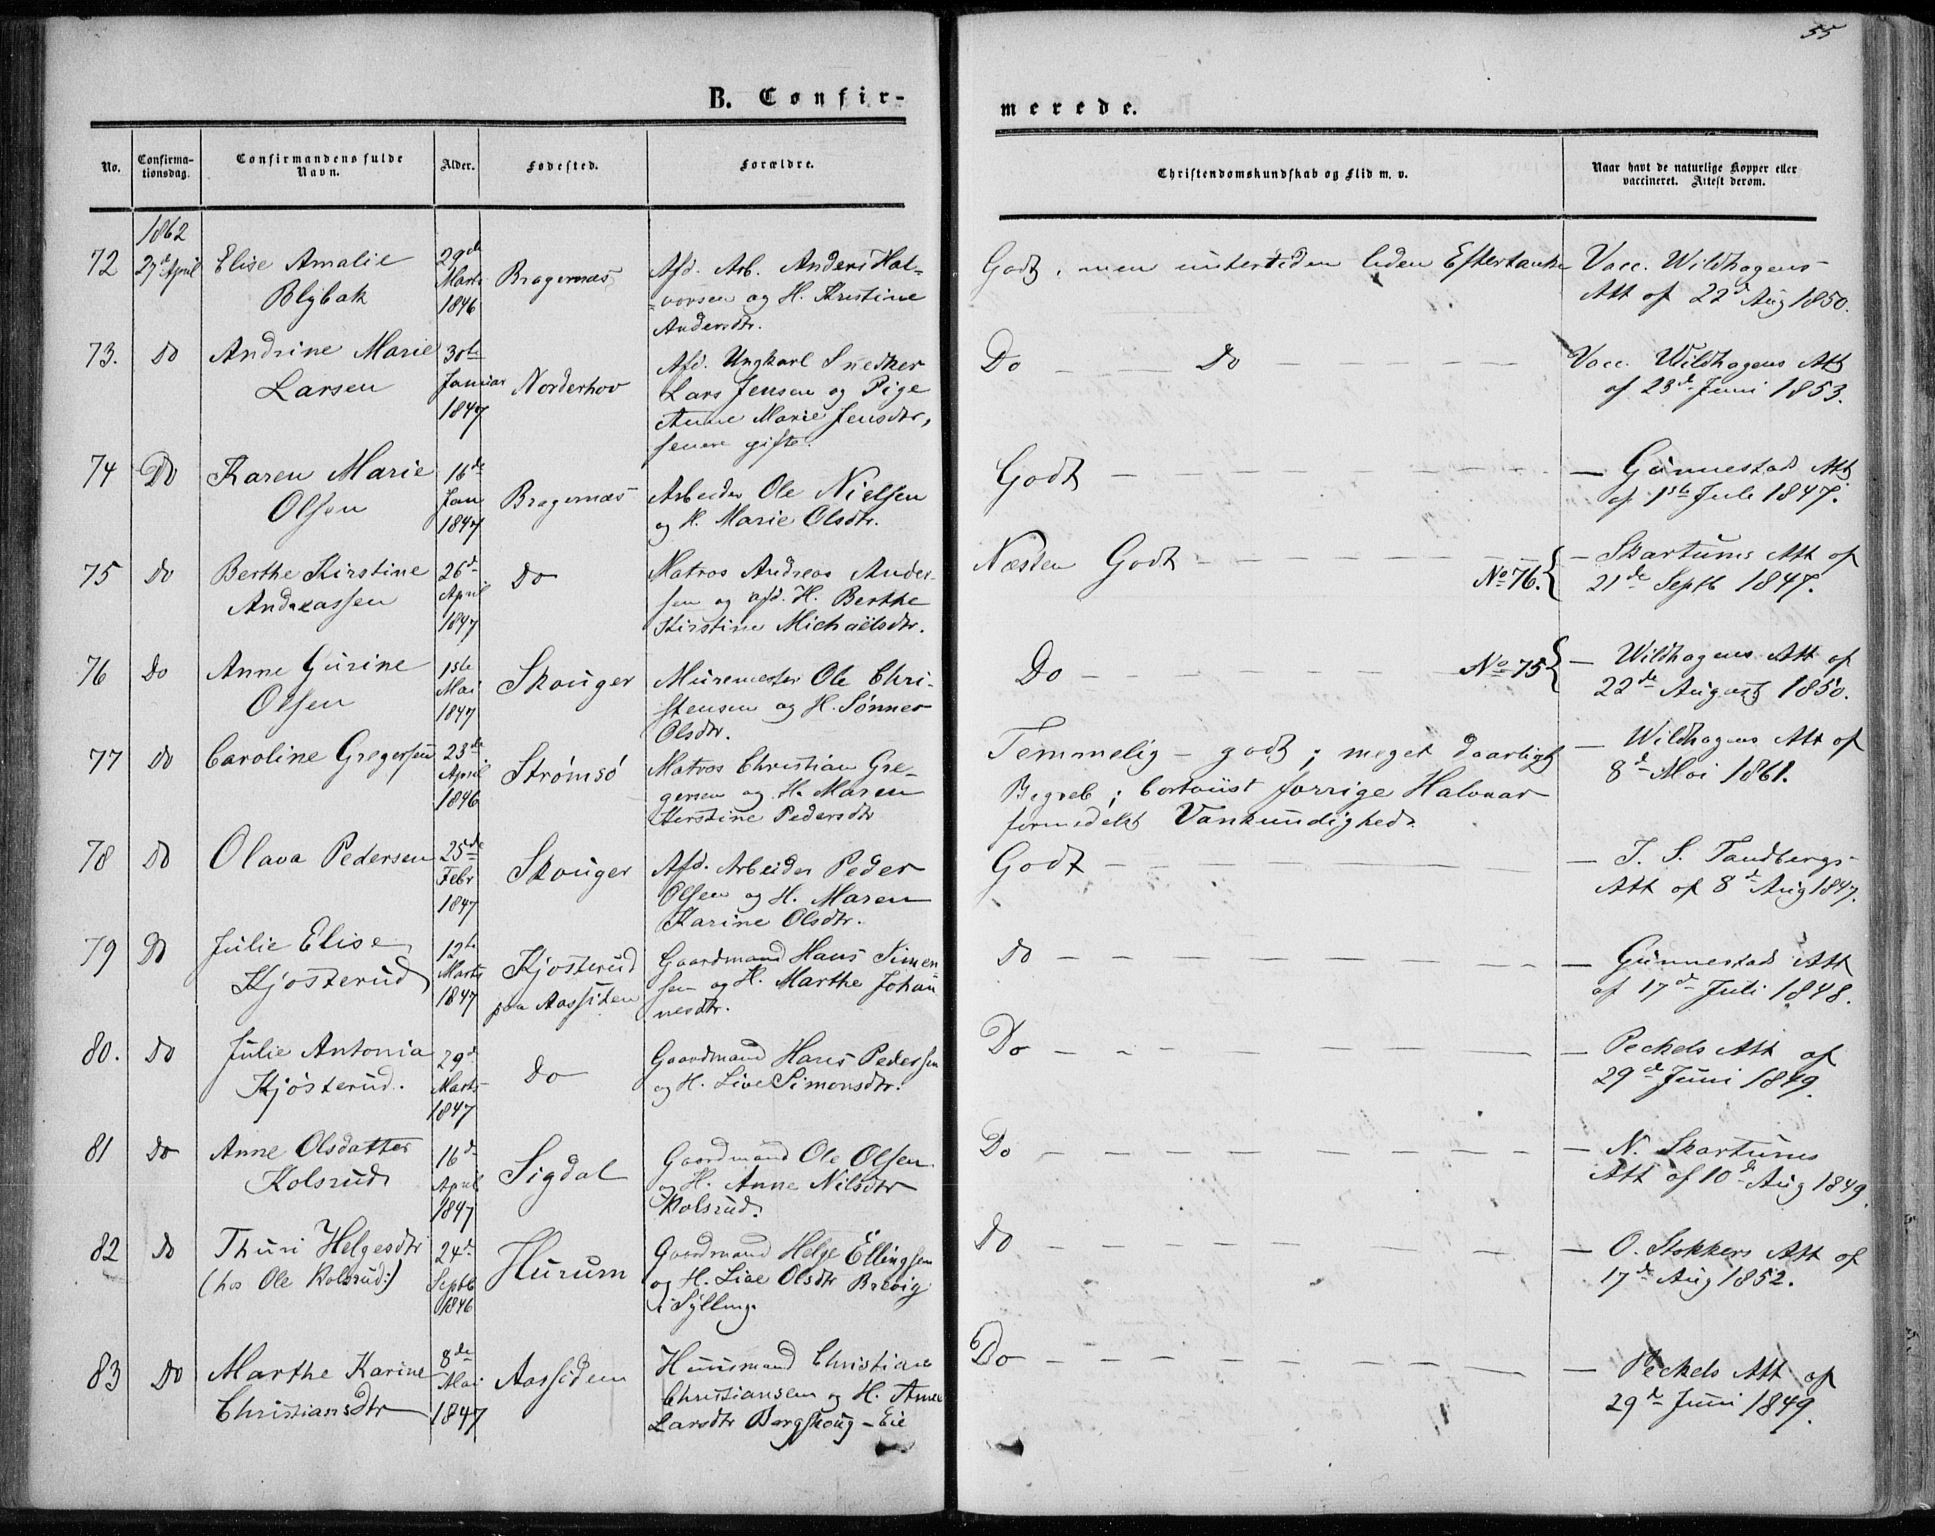 55
B. Confir-
merede.
No.
Confirma-
tionsdag.
Confirmandens fulde
Navn.
Alder.
Fødested.
Forældre.
Christendomskundskab og Flid m. v.
Naar havt de naturlige Kopper eller
vaccineret. Attest derom.
1862
72 27de April Elise Amalie 29de Bragernæs Afd. Arb. Anders Hal- Godt, men undertiden liden Eftertanke Vacc. Wildhagens
Blybak Marts vorsen og H. Kristine Att af 22de Aug 1850.
1846 Andersdtr.
73. Do Andrine Marie 30te Norderhov Afd. Ungkarl Snedker Do Do Vacc. Wildhagens Att
Larsen Januar Lars Jensen og Pige af 23de Juni 1853.
1847 Anne Marie Jensdtr,
senere gifte.
74 Do Karen Marie 16de Bragernæs Arbeider Ole Nielsen Godt — Gunnestads Att
Olsen Jan og H. Marie Olsdtr. af 1ste Juli 1847.
1847
75 Do Berthe Kirstine 26de Do Matros Andreas Ander- Næsten Godt No 76. { — Skartums Att af
Andreassen April sen og afd. H. Berthe 21de Septb 1847.
1847 Kirstine Michaëlsdtr.
76 Do Anne Gurine 1ste Skouger Muremester Ole Chri- Do No 75 { — Wildhagens Att af
Olsen Mai stensen og H. Sønner 22de August 1850.
1847 Olsdtr.
77 Do Caroline Gregersen 23de Strømsø Matros Christian Gre- Temmelig - godt; meget daarligt — Wildhagens Att af
April gersen og H. Maren Begreb; bortviist forrige Halvaar 8de Mai 1861.
1846 Kirstine Pedersdtr formedelst Vankundighed.
78 Do Olava Pedersen 25de Skouger Afd. Arbeider Peder Godt — J. S. Tandbergs
Febr Olsen og H. Maren Att af 8de Aug 1847.
1847 Karine Olsdtr.
79 Do Julie Elise 12te Kjøsterud Gaardmand Hans Simen Do — Gunnestads Att
Kjøsterud Marts paa Aassiden sen og H. Marthe Johan af 17de Juli 1848.
1847 nesdtr.
80. Do Julie Antonia 29de Do Gaardmand Hans Pedersen Do — Peckels Att af
Kjøsterud. Marts og H. Live Simonsdtr. 29de Juni 1849.
1847
81 Do Anne Olsdatter 16de Sigdal Gaardmand Ole Olsen Do — N. Skartums
Kolsrud April og H. Anne Nilsdtr Att af 10de Aug 1849.
1847 Kolsrud.
82 Do Thuri Helgesdtr 24de Hurum Gaardmand Helge Ellingsen Do — O. Stokkers Att af
(hos Ole Kolsrud:) Septb og H. Live Olsdtr Brevig 17de Aug 1852.
1846 i Sylling.
83 Do Marthe Karine 8de Aassiden Huusmand Christian Do — Peckels Att af
Christiansdtr Mai Christiansen og H. Anne 29de Juni 1849.
1847 Larsdtr Bergskoug-Eie